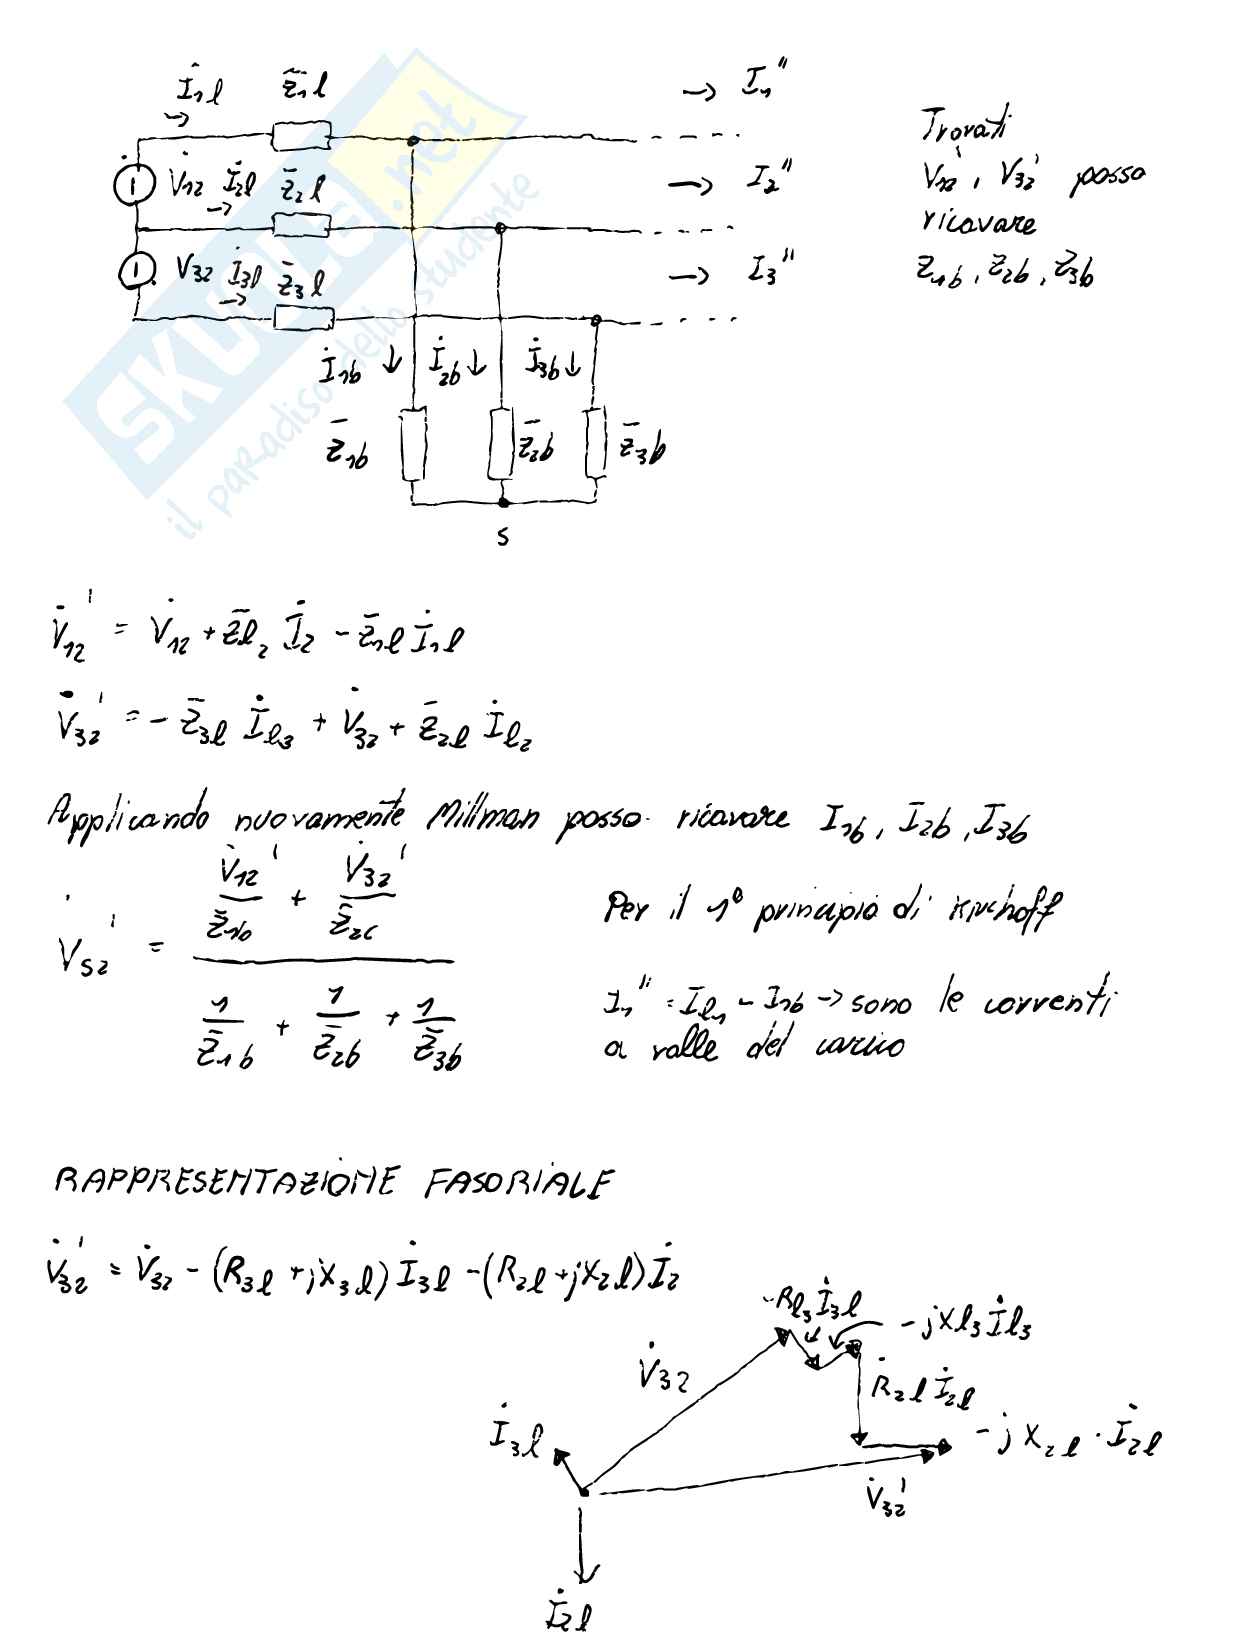 İ₁l Z̄₁l → I₁''
Trovati
V̇₁₂ İ₂l Z̄₂l → I₂''
V₁₂', V₃₂' posso
ricavare
V₃₂ İ₃l Z̄₃l → I₃''
Z₁b, Z₂b, Z₃b
İ₁b ↓ İ₂b ↓ İ₃b ↓
Z̄₁b Z̄₂b Z̄₃b
S
SKUOLA.net
il paradiso dello studente
V̇₁₂' = V̇₁₂ + Z̄l₂ İ₂ - Z̄₁l İ₁l
V̇₃₂' = - Z̄₃l İl₃ + V̇₃₂ + Z̄₂l İl₂
Applicando nuovamente Millman posso ricavare I₁b, I₂b, I₃b
V̇₁₂' / Z̄₁b + V̇₃₂' / Z̄₂c
V̇s₂' =
1 / Z̄₁b + 1 / Z̄₂b + 1 / Z̄₃b
Per il 1° principio di Kirchoff
I₁'' = Il₁ - I₁b → sono le correnti
a valle del carico
RAPPRESENTAZIONE FASORIALE
V̇₃₂' = V̇₃₂ - (R₃l + jX₃l) İ₃l - (R₂l + jX₂l) İ₂
-Rl₃ İ₃l
-jXl₃ İl₃
V̇₃₂
Ṙ₂l İ₂l
İ₃l
-jX₂l · İ₂l
V̇₃₂'
İ₂l